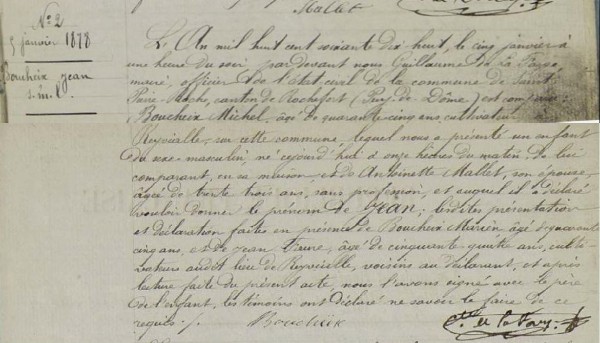 Mallet
N° 2
5 janvier 1878
Boucheix Jean
s.m.l.
L'An mil huit cent soixante dix huit, le cinq janvier à
une heure du soir pardevant nous Guillaume de La Farge
maire, officier de l'état civil de la commune de Saint
Pierre-Roche, canton de Rochefort (Puy-de-Dôme) est comparu
Boucheix Michel, âgé de quarante-cinq ans cultivateur
sur cette commune, lequel nous a présenté un enfant
du sexe masculin, né cejourd'hui à onze heures du matin, de lui
comparant, en sa maison et de Antoinette Mallet, son épouse,
âgée de trente trois ans, sans profession, et auquel il a déclaré
vouloir donner le prénom de Jean, lesdites présentation
et déclaration faites en présence de Boucheix Marien, âgé de quarante
cinq ans, et de Jean âgé de cinquante-quatre ans, culti-
vateurs audit lieu de voisins du déclarant, et après
lecture faite du présent acte, nous l'avons signé avec le père
de l'enfant, les témoins ont déclaré ne savoir le faire de ce
requis ./.
Boucheix